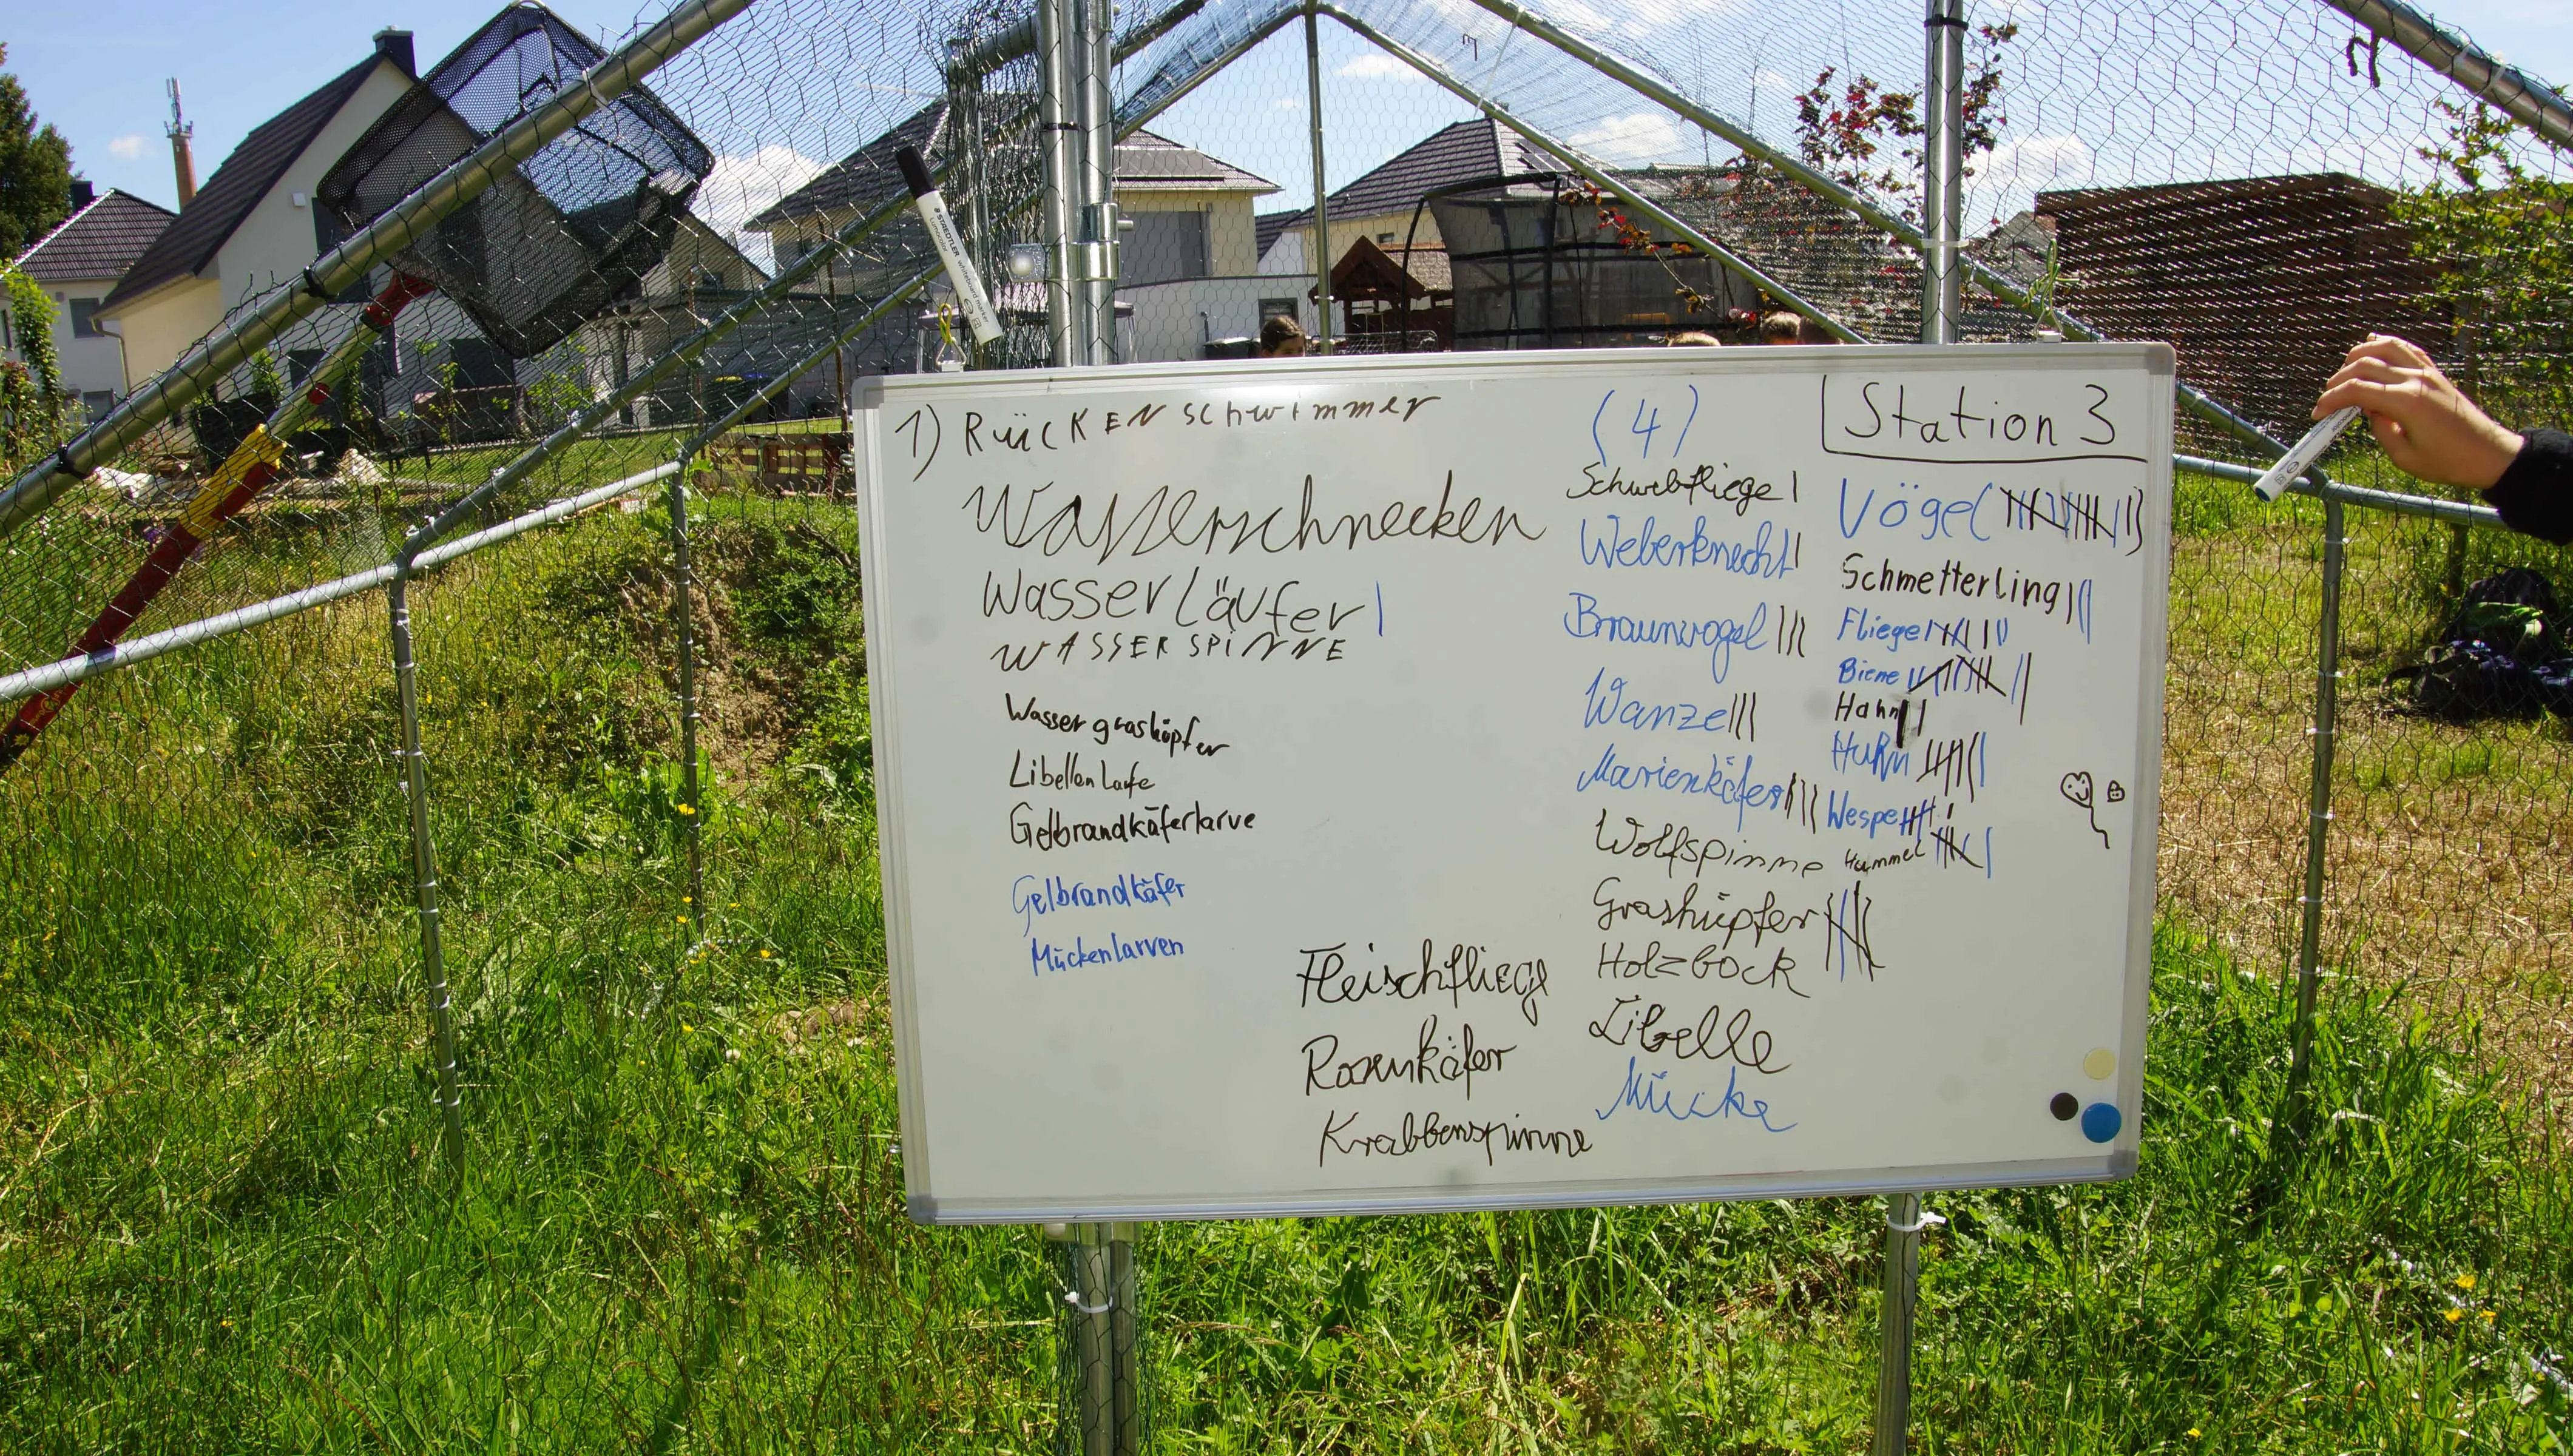 STAEDTLER
Lumocolor whiteboard marker
1) RÜCKENschwimmer
Wasserschnecken
Wasserläufer |
WASSERSPINNE
Wassergrashöpfer
Libellenlarfe
Gelbrandkäferlarve
Gelbrandkäfer
Mückenlarven
Fleischfliege
Rosenkäfer
Krabbenspinne
(4)
Schwebfliege |
Weberknecht |
Braunvogel |||
Wanze |||
Marienkäfer ||||
Wolfspinne
Grashüpfer
Holzbock
Libelle
Mücke
Station 3
Vögel
Schmetterling |||
Fliege
Biene
Hahn
Huhn
Wespe
Hummel